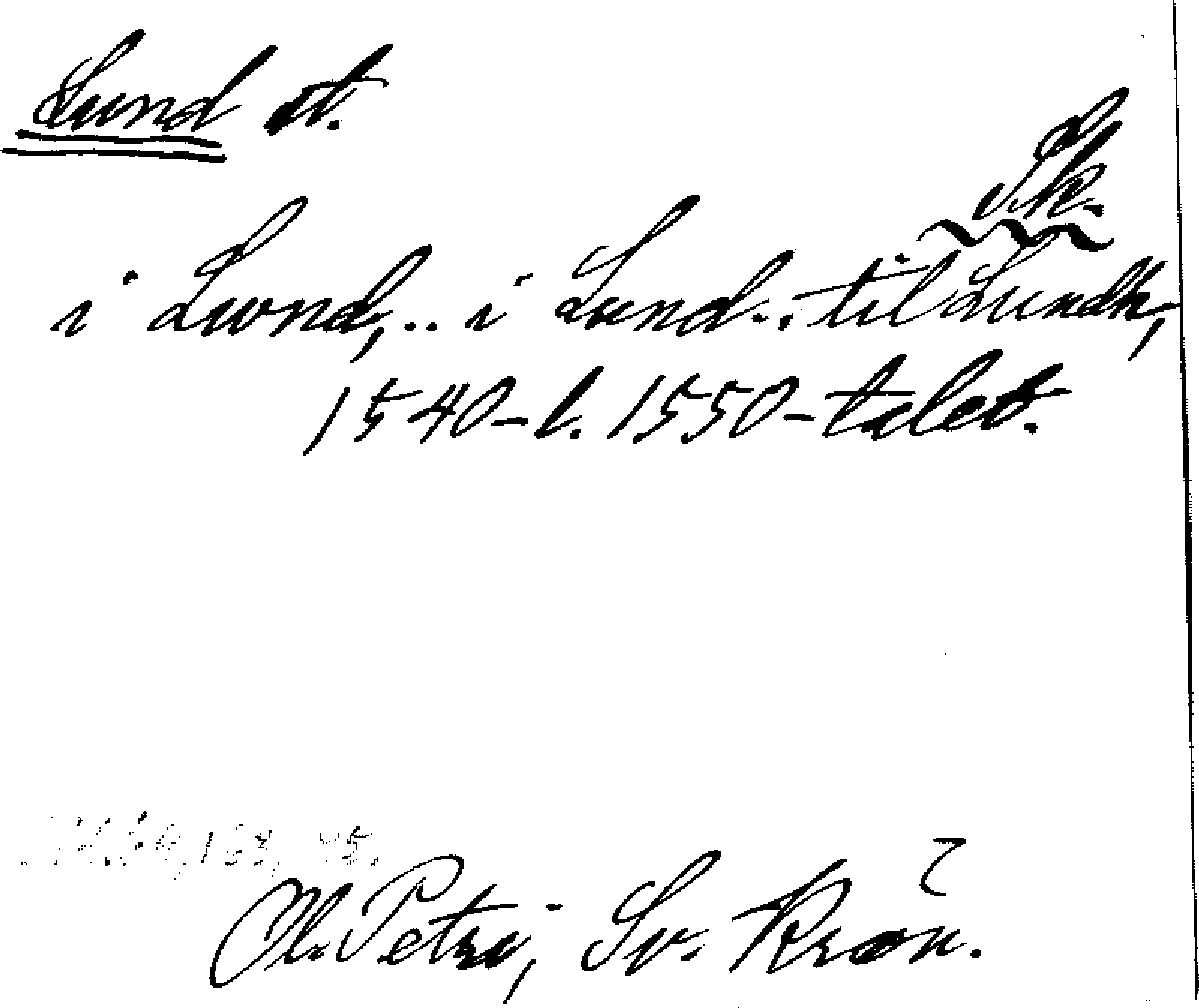 Lund st.
Sk.
i Lwnd,.. i Lund.. til Lundh,
1540-l. 1550-talet.
Ol. Petri, Sv. Krön.